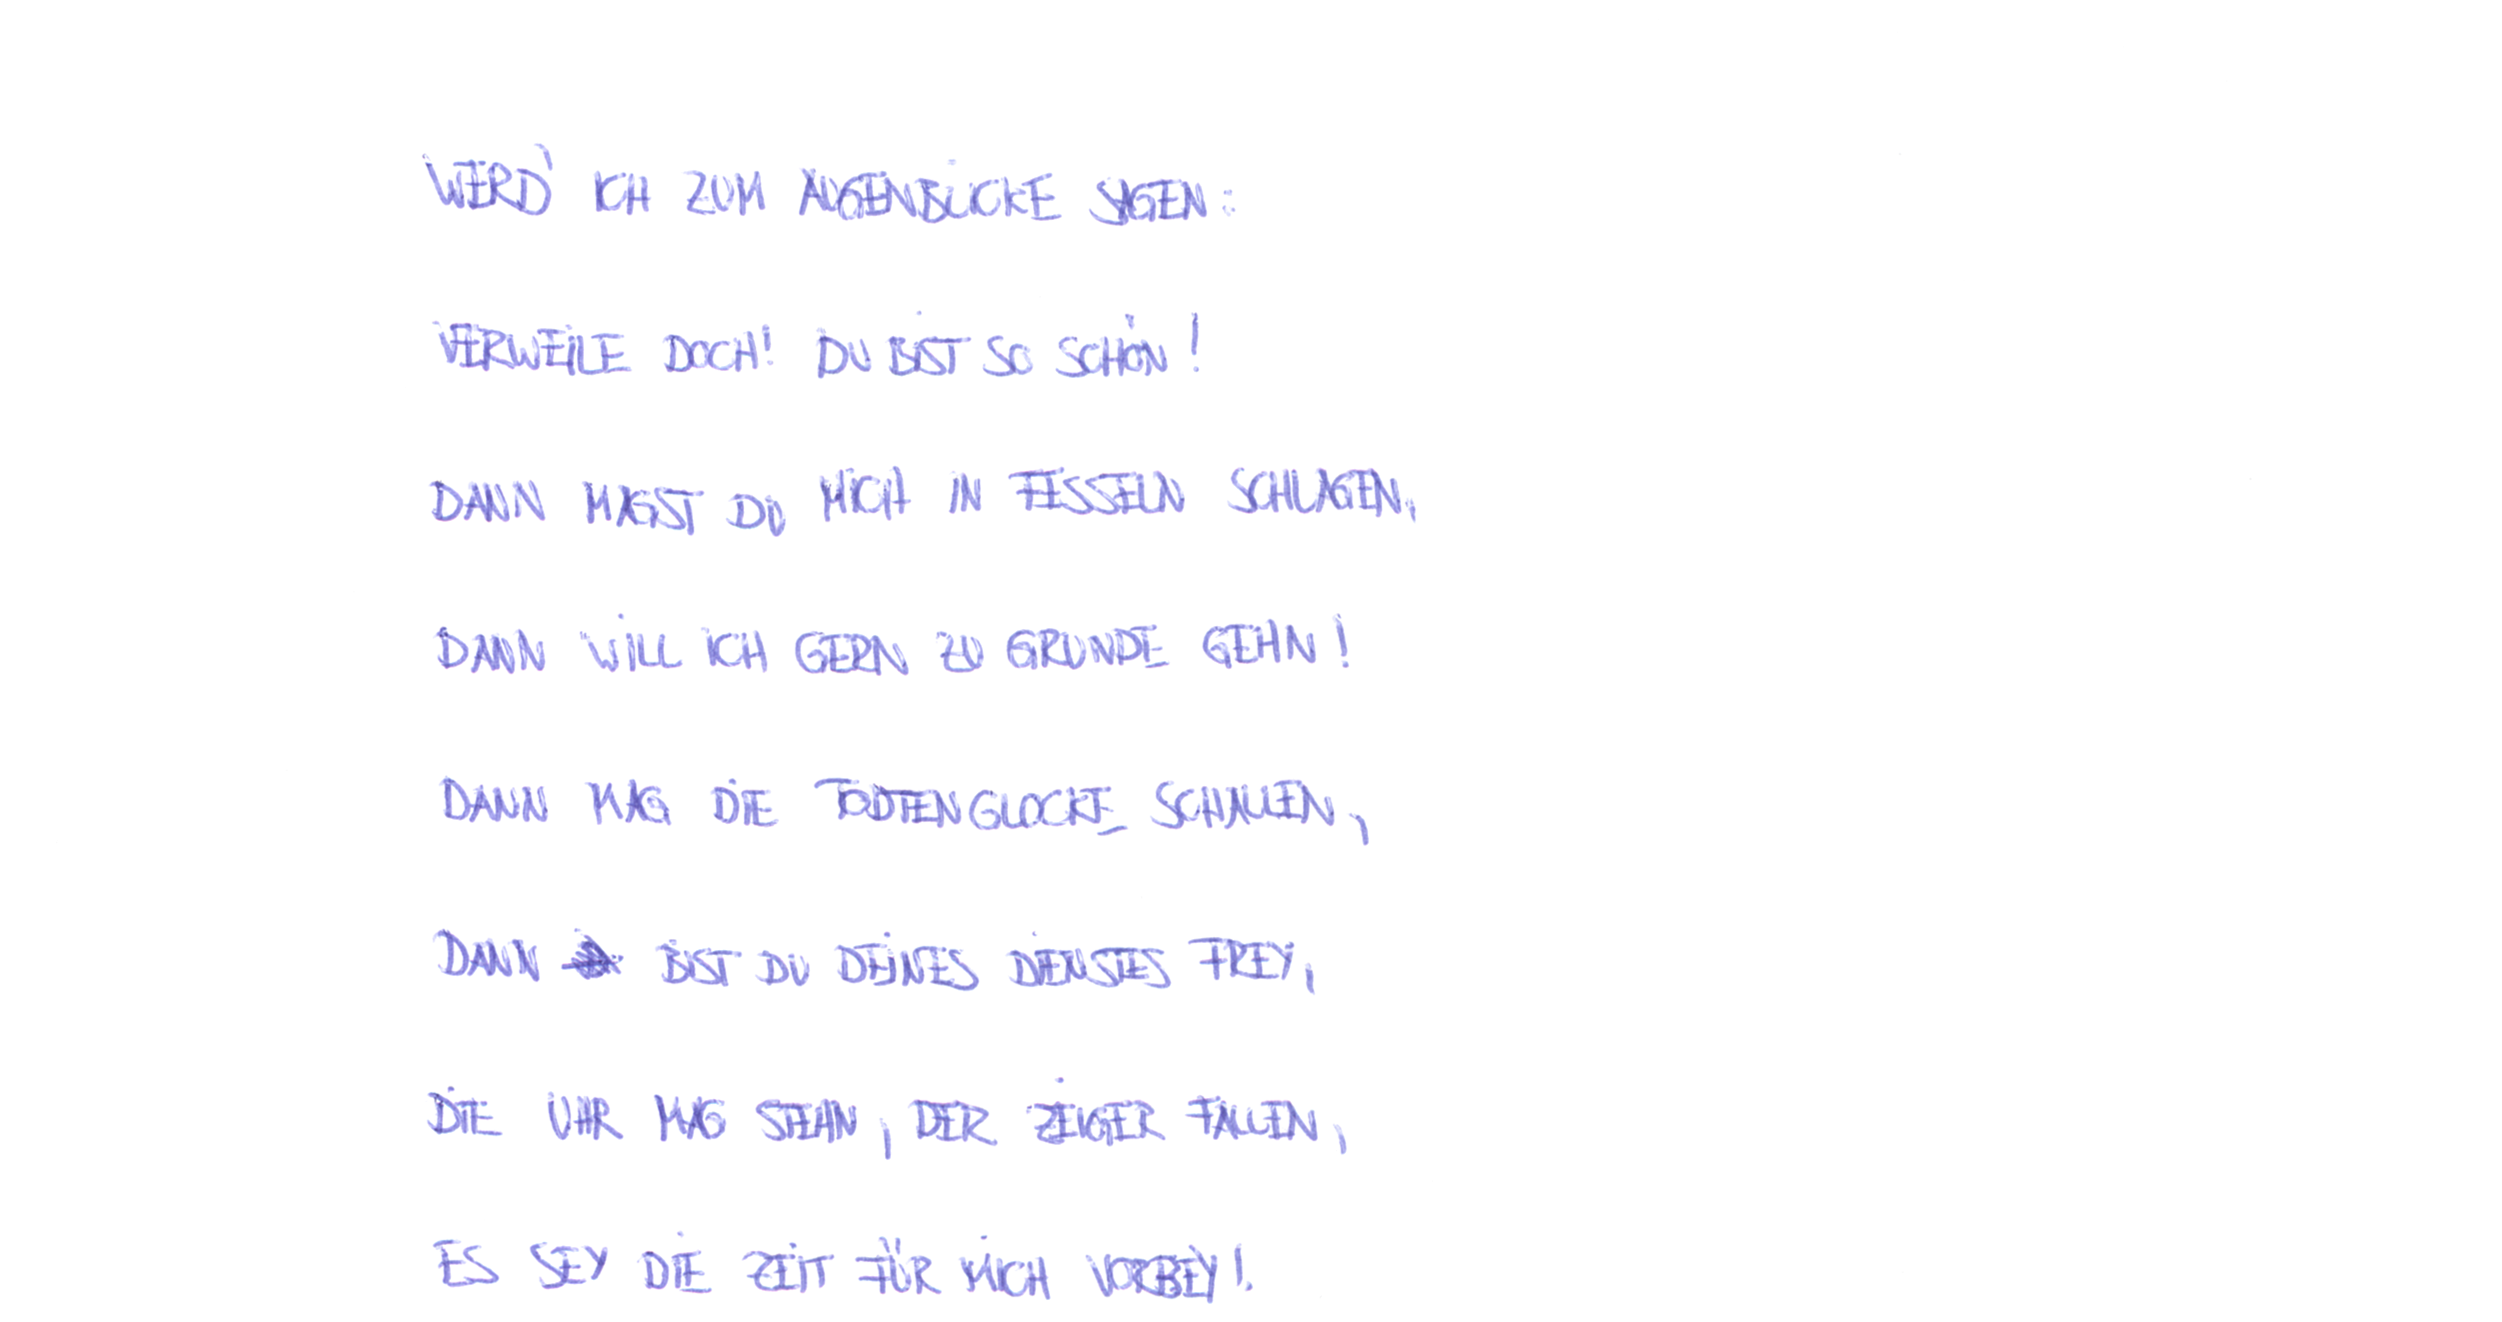 WERD' ICH ZUM AUGENBLICKE SAGEN:
VERWEILE DOCH! DU BIST SO SCHÖN!
DANN MAGST DU MICH IN FESSELN SCHLAGEN,
DANN WILL ICH GERN ZU GRUNDE GEHN!
DANN MAG DIE TODTENGLOCKE SCHALLEN,
DANN BIST DU DEINES DIENSTES FREY,
DIE UHR MAG STEHN, DER ZEIGER FALLEN,
ES SEY DIE ZEIT FÜR MICH VORBEY!